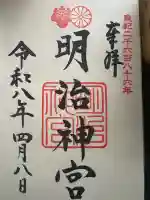 皇紀二千六百八十六年
奉拝
明治神宮
令和八年四月八日